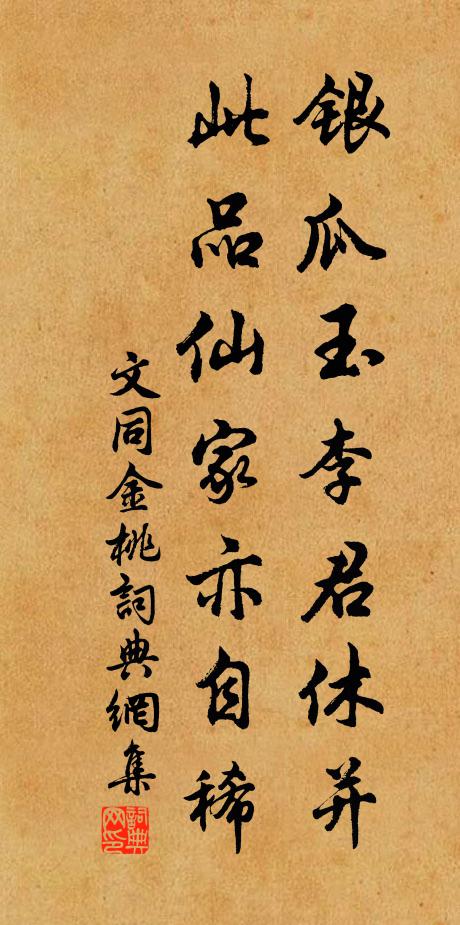 银瓜玉李君休并
此品仙家亦自稀
文同金桃詞典網集
詞典
网印